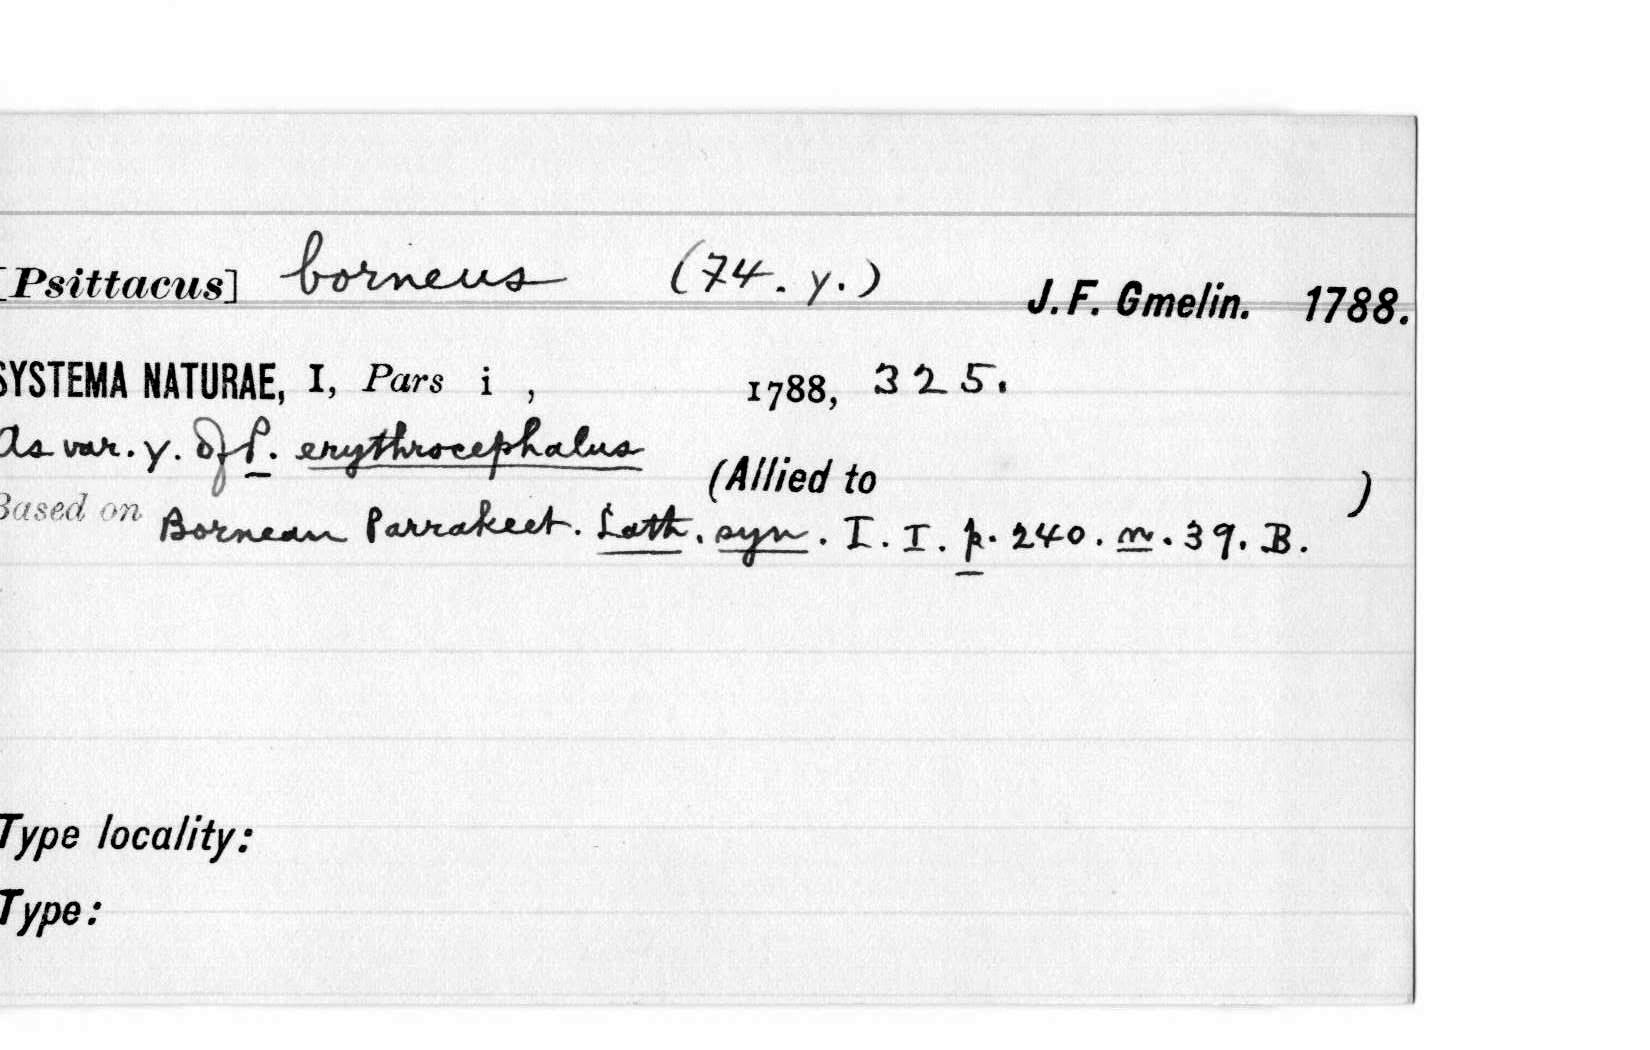 [Psittacus] borneus (74. γ.) J. F. Gmelin. 1788.
SYSTEMA NATURAE, I, Pars i , 1788, 325.
As var. γ. of P. erythrocephalus
(Allied to )
Based on Bornean Parrakeet. Lath. syn. I. I. p. 240. n. 39. B.
Type locality:
Type: